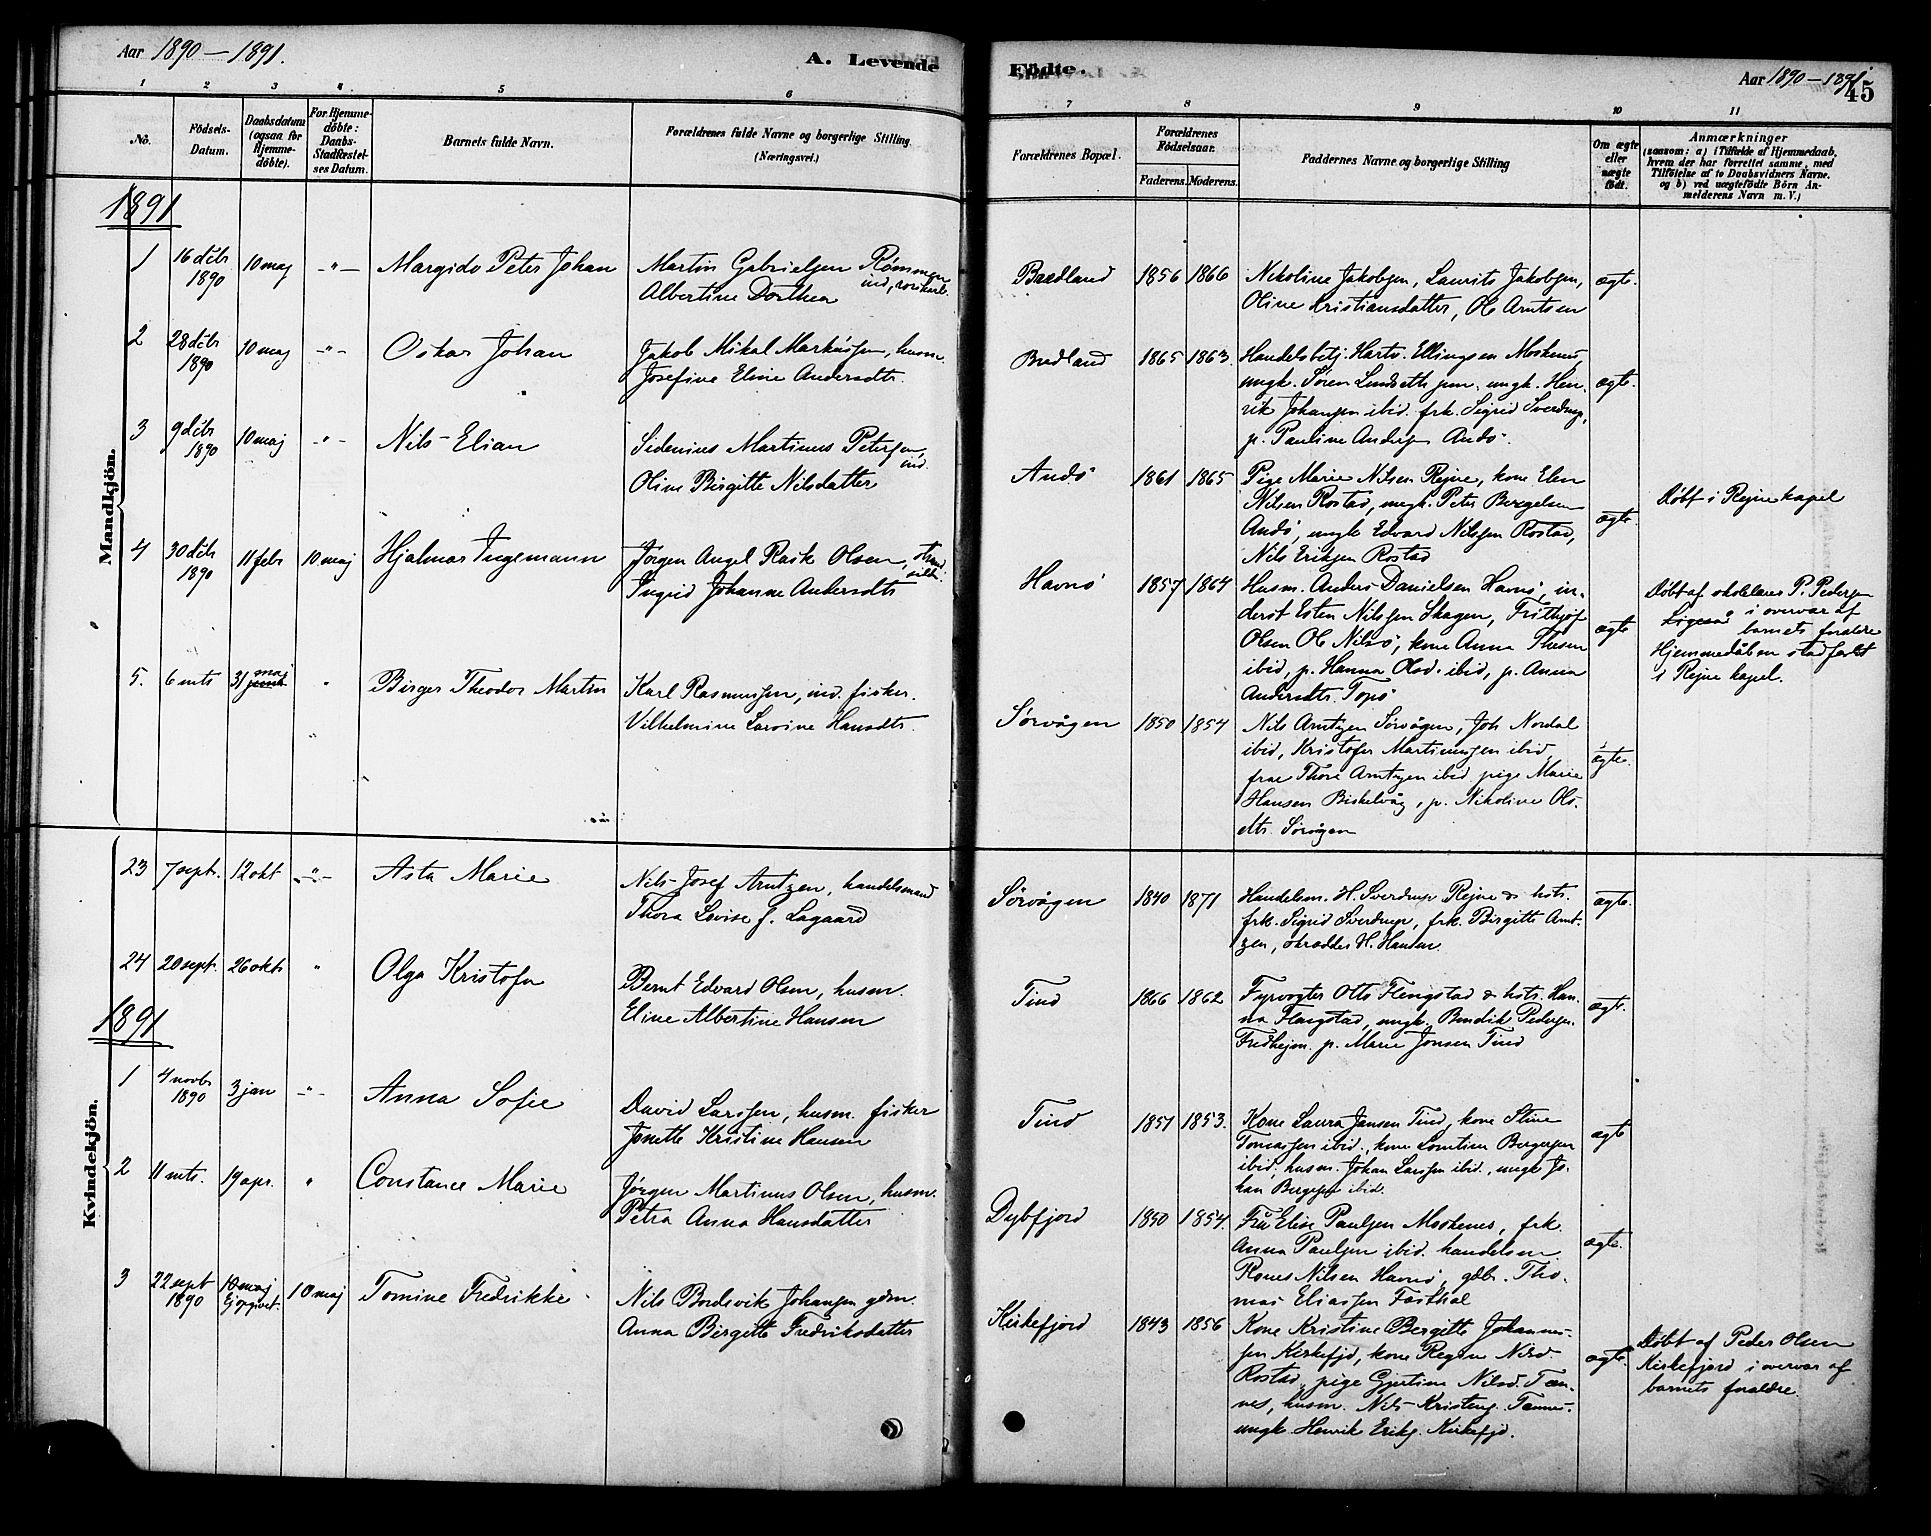 Aar 1890 – 1891.
A. Levende
1 2 3 4 5 6
No.
Födsels-
Datum.
Daabsdatum
(ogsaa for
Hjemme-
döbte).
For Hjemme-
döbte:
Daabs-
Stadfæstel-
ses Datum.
Barnets fulde Navn.
Forældrenes fulde Navne og borgerlige Stilling
(Næringsvei.)
Mandkjön.
1891
1 16 dcbr 1890 10 maj -"- Margido Peter Johan
Martin Gabrielsen Rømmen
Albertine Dorthea
2 28 dcbr 1890 10 maj -"- Oskar Johan
Jakob Mikal Markussen, husm.
Josefine Eline Andersdtr.
3 9 dcbr 1890 10 maj -"- Nils Elian
Sidenius Martinus Petersen, ind.
Oline Birgitte Nilsdatter
4 30 dcbr 1890 11 febr 10 maj Hjalmar Ingemann
Jørgen Angel Rask Olsen,
Ingrid Johanne Andersdtr
5. 6 mts 31 maj " Birger Theodor Martin
Karl Rasmussen, ind. fisker.
Vilhelmine Lavine Hansdtr.
Kvindekjön.
23 7 sept. 12 okt -"- Asta Marie
Nils Josef Arntzen, handelsmand
Thora Lovise f. Lagaard
24 20 sept. 26 okt " Olga Kristofa
Bernt Edvard Olsen, husm.
Eline Albertine Hansen
1891
1 4 novbr 1890 3 jan -"- Anna Sofie
David Larssen, husm. fisker
Jonette Kristine Hansen
2 11 mts. 19 apr. " Constance Marie
Jørgen Martinus Olsen, husm.
Petra Anna Hansdatter
3 22 sept 1890 10 maj Ej opgivet. 10 maj Tomine Fredrikke
Nils Bordsvik Johansen gdm.
Anna Birgitte Fredriksdatter
Födte.
Aar 1890 – 1891.
45
7 8 9 10 11
Forældrenes Bopæl.
Forældrenes
Födselsaar.
Faderens. Moderens.
Faddernes Navne og borgerlige Stilling
Om ægte
eller
uægte
födt.
Anmærkninger
(saasom: a) i Tilfælde af Hjemmedaab,
hvem der har forrettet samme, med
Tilföielse af to Daabsvidners Navne.
og b) ved uægtefödte Börn An-
melderens Navn m. V.)
Bredland 1856 1866 Nikoline Jakobsen, Laurits Jakobsen,
Oline Kristiansdatter, Ol. Arntsen
ægte.
Bredland 1865 1863. Handelsbetj. Hartv. Ellingsen Moskenes
ungk. Søren Lundseth jun. ungk. Hen-
rik Johansen ibid. frk. Sigrid Sverdrup,
p. Pauline Anders. Andø.
ægte.
Andø 1861 1865 Pige Marie Nilsen Rejne, kone Elen
Nilsen Rostad, ungk. Peter Bergersen
Andø, ungk Edvard Nilssen Rostad,
Nils Eriksen Rostad
ægte
Døbt i Rejne kapel
Havnø 1857 1864 Husm. Anders Danielsen Havnø, in-
derst Esten Nilssen Skagen, Frithjof
Olsen Ol. Nilsø, kone Anna
ibid, p. Hanna Olsd. ibid, p. Anna
Andersdtr. Topø
ægte
Døbt af skolelærer P. Pedersen
i overvær af
barnets forældre
Hjemmedåben stadfæstet
i Rejne kapel.
Sørvågen 1850 1854 Nils Arntzen Sørvågen, Joh. Nordal
ibid, Kristofer Martinussen ibid.
frue Thora Arntzen ibid. pige Marie
Hansen, p. Nikoline Ols-
dtr. Sørvågen
ægte.
Sørvågen 1840 1871 Handelsm. H. Sverdrup Rejne & hstr.
frk. Sigrid Sverdrup, frk. Birgitte Arnt-
zen, skrædder H. Hansen.
ægte.
Tind 1866 1862 Fyrvogter Otto Flengstad & hstr. Han-
na Flengstad, ungk. Bendik Pedersen
Fredhejm. p. Marie Jonsen Tind
ægt.
Tind 1851 1853. Kone Laura Jansen Tind, kone Stine
Tomassen ibid., kone Bergersen
ibid., husm. Johan Larssen ibid., ungk Jo-
han Bergersen ibid.
ægt
Dybfjord 1850 1854. Fru Elise Paulsen Moskenes, frk.
Anna Paulsen ibid. handelsm.
Nilsen Havnø, gdbr. Tho-
mas Eliassen
ægte.
Kirkefjord 1843 1856 Kone Kristine Bergitte Johannes-
sen Kirkefjd, kone Regine Nilsd
Rostad, pige Gjertine Nilsd. Ten-
nes, husm. Nils Kristens. Tennes.
ungk. Henrik Eriks. Kirkefjd.
ægte.
Døbt af Peder Olsen
Kirkefjord i overvær af
barnets forældre.